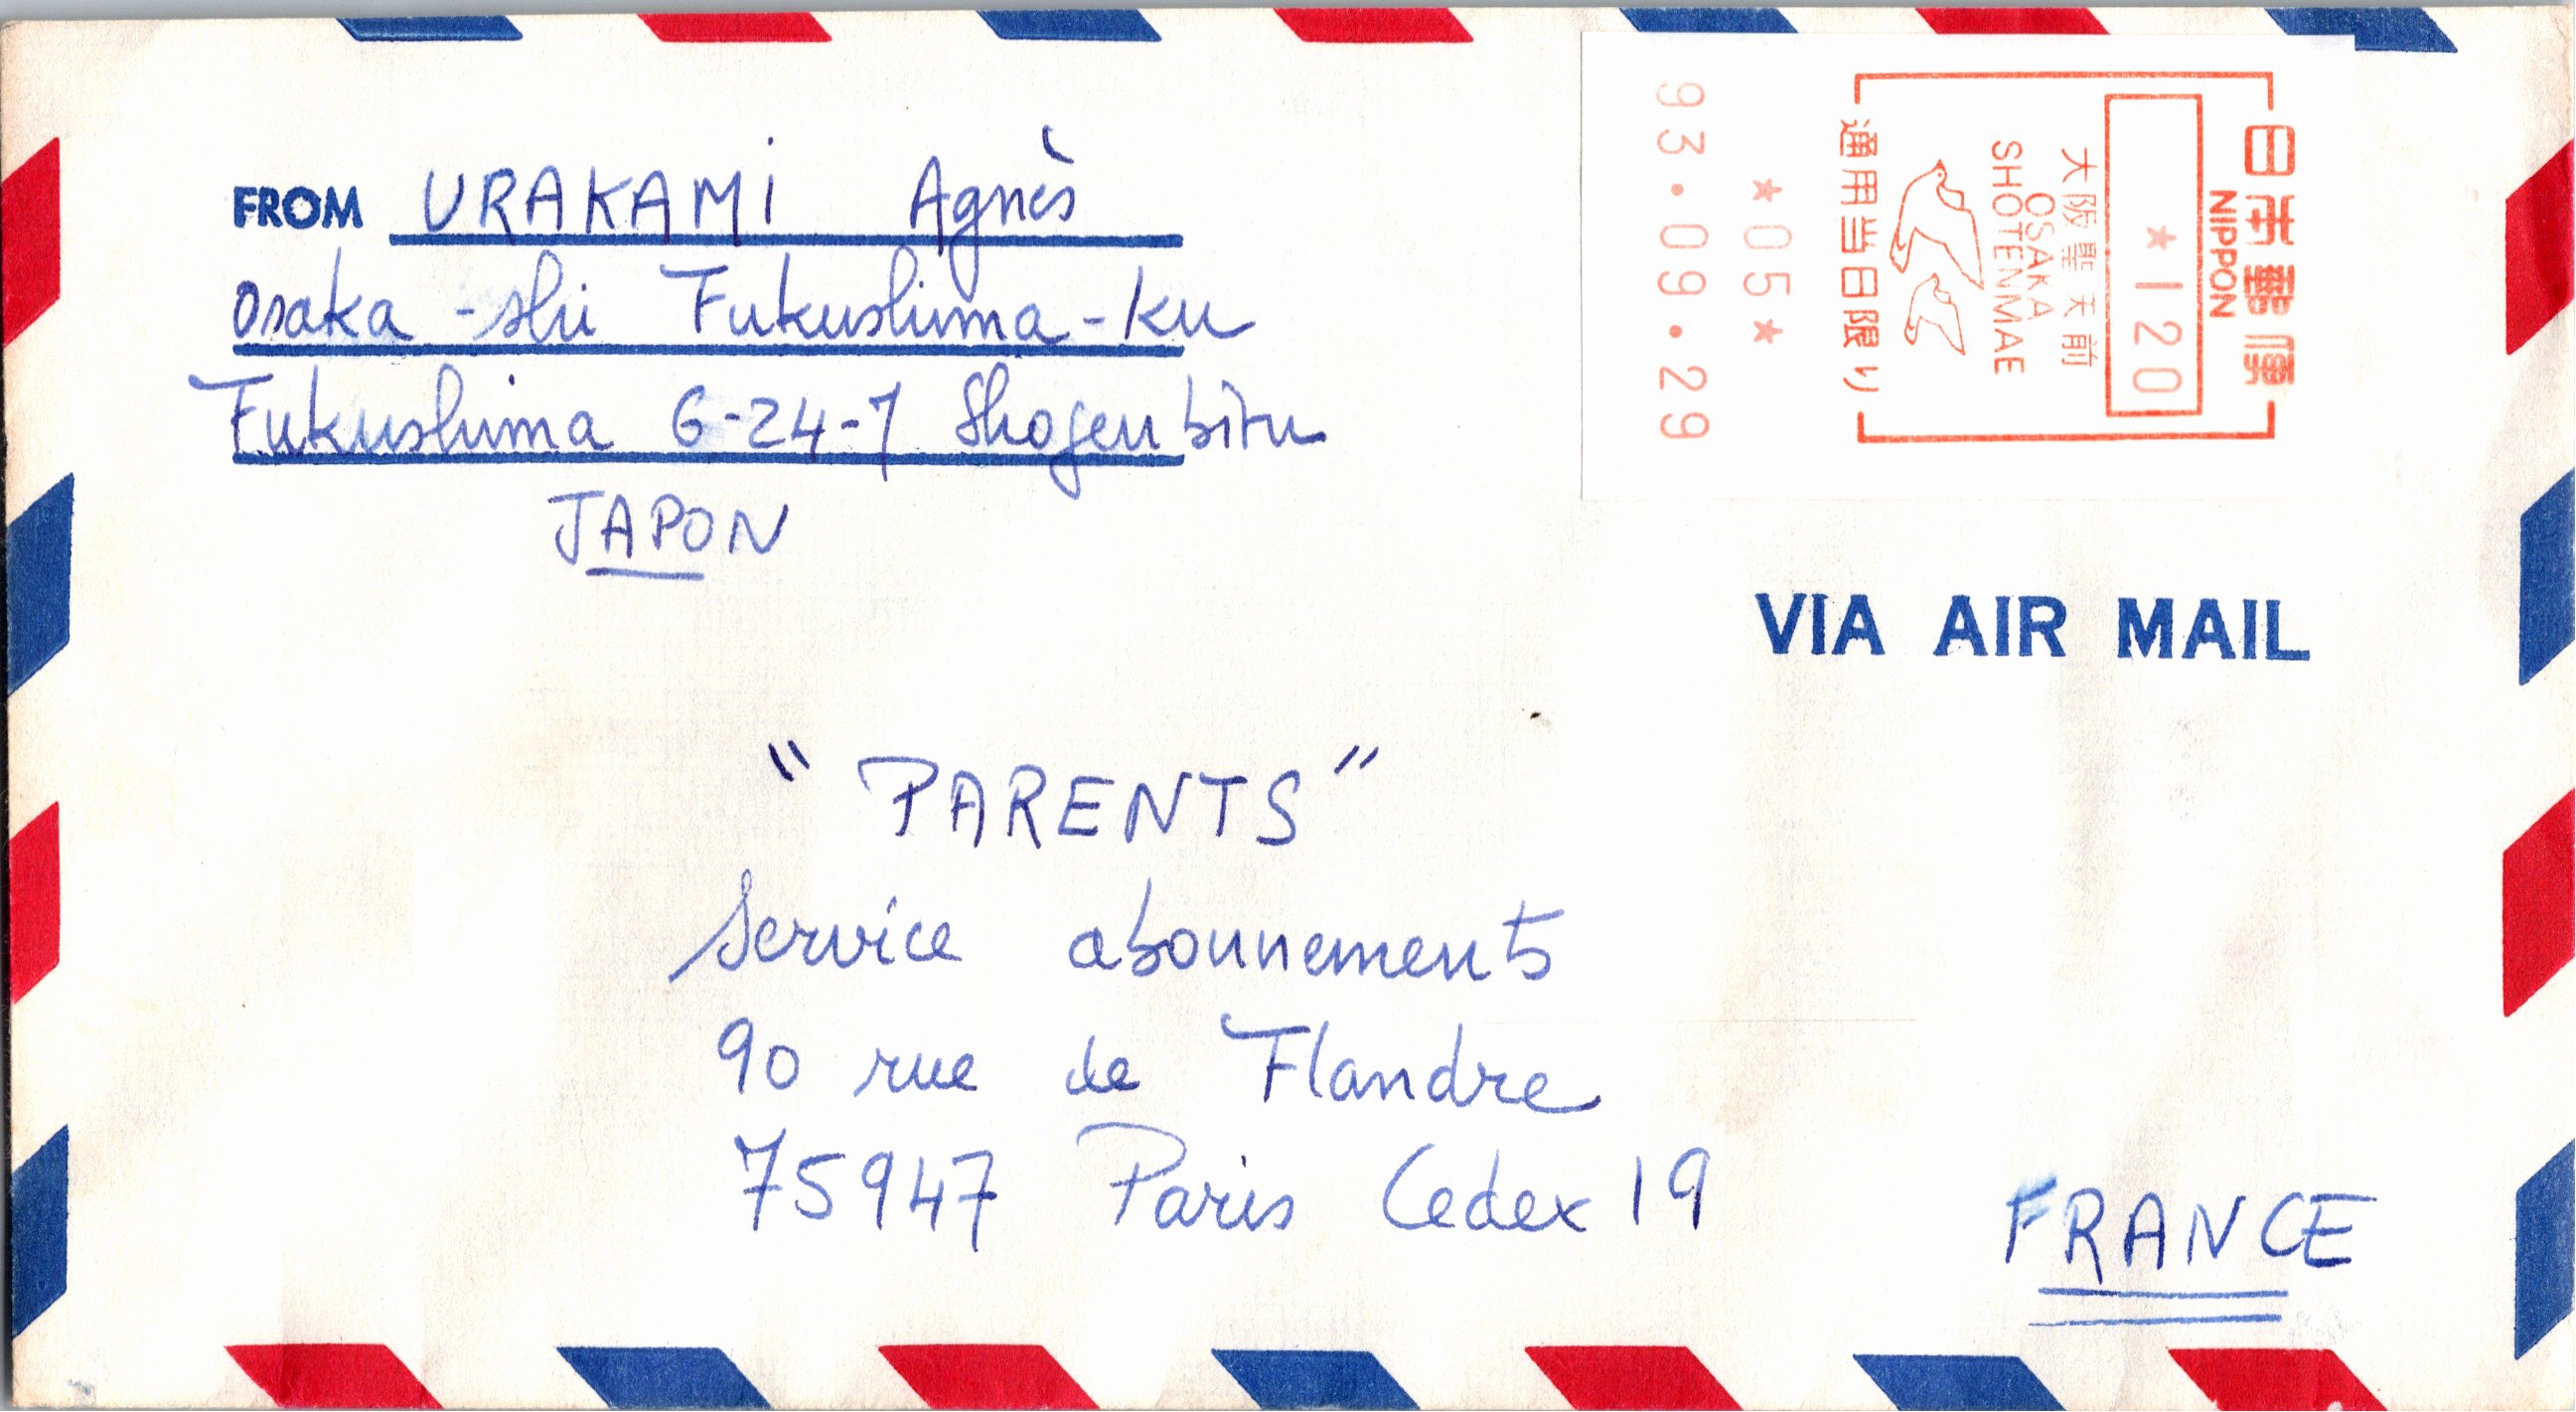 FROM URAKAMI Agnès
Osaka-shi Fukushima-ku
Fukushima 6-24-7 Shogen biru
JAPON
日本郵便
NIPPON
*120
大阪聖天前
OSAKA
SHOTENMAE
通用当日限り
*05*
93.09.29
VIA AIR MAIL
"PARENTS"
Service abonnements
90 rue de Flandre
75947 Paris Cedex 19
FRANCE